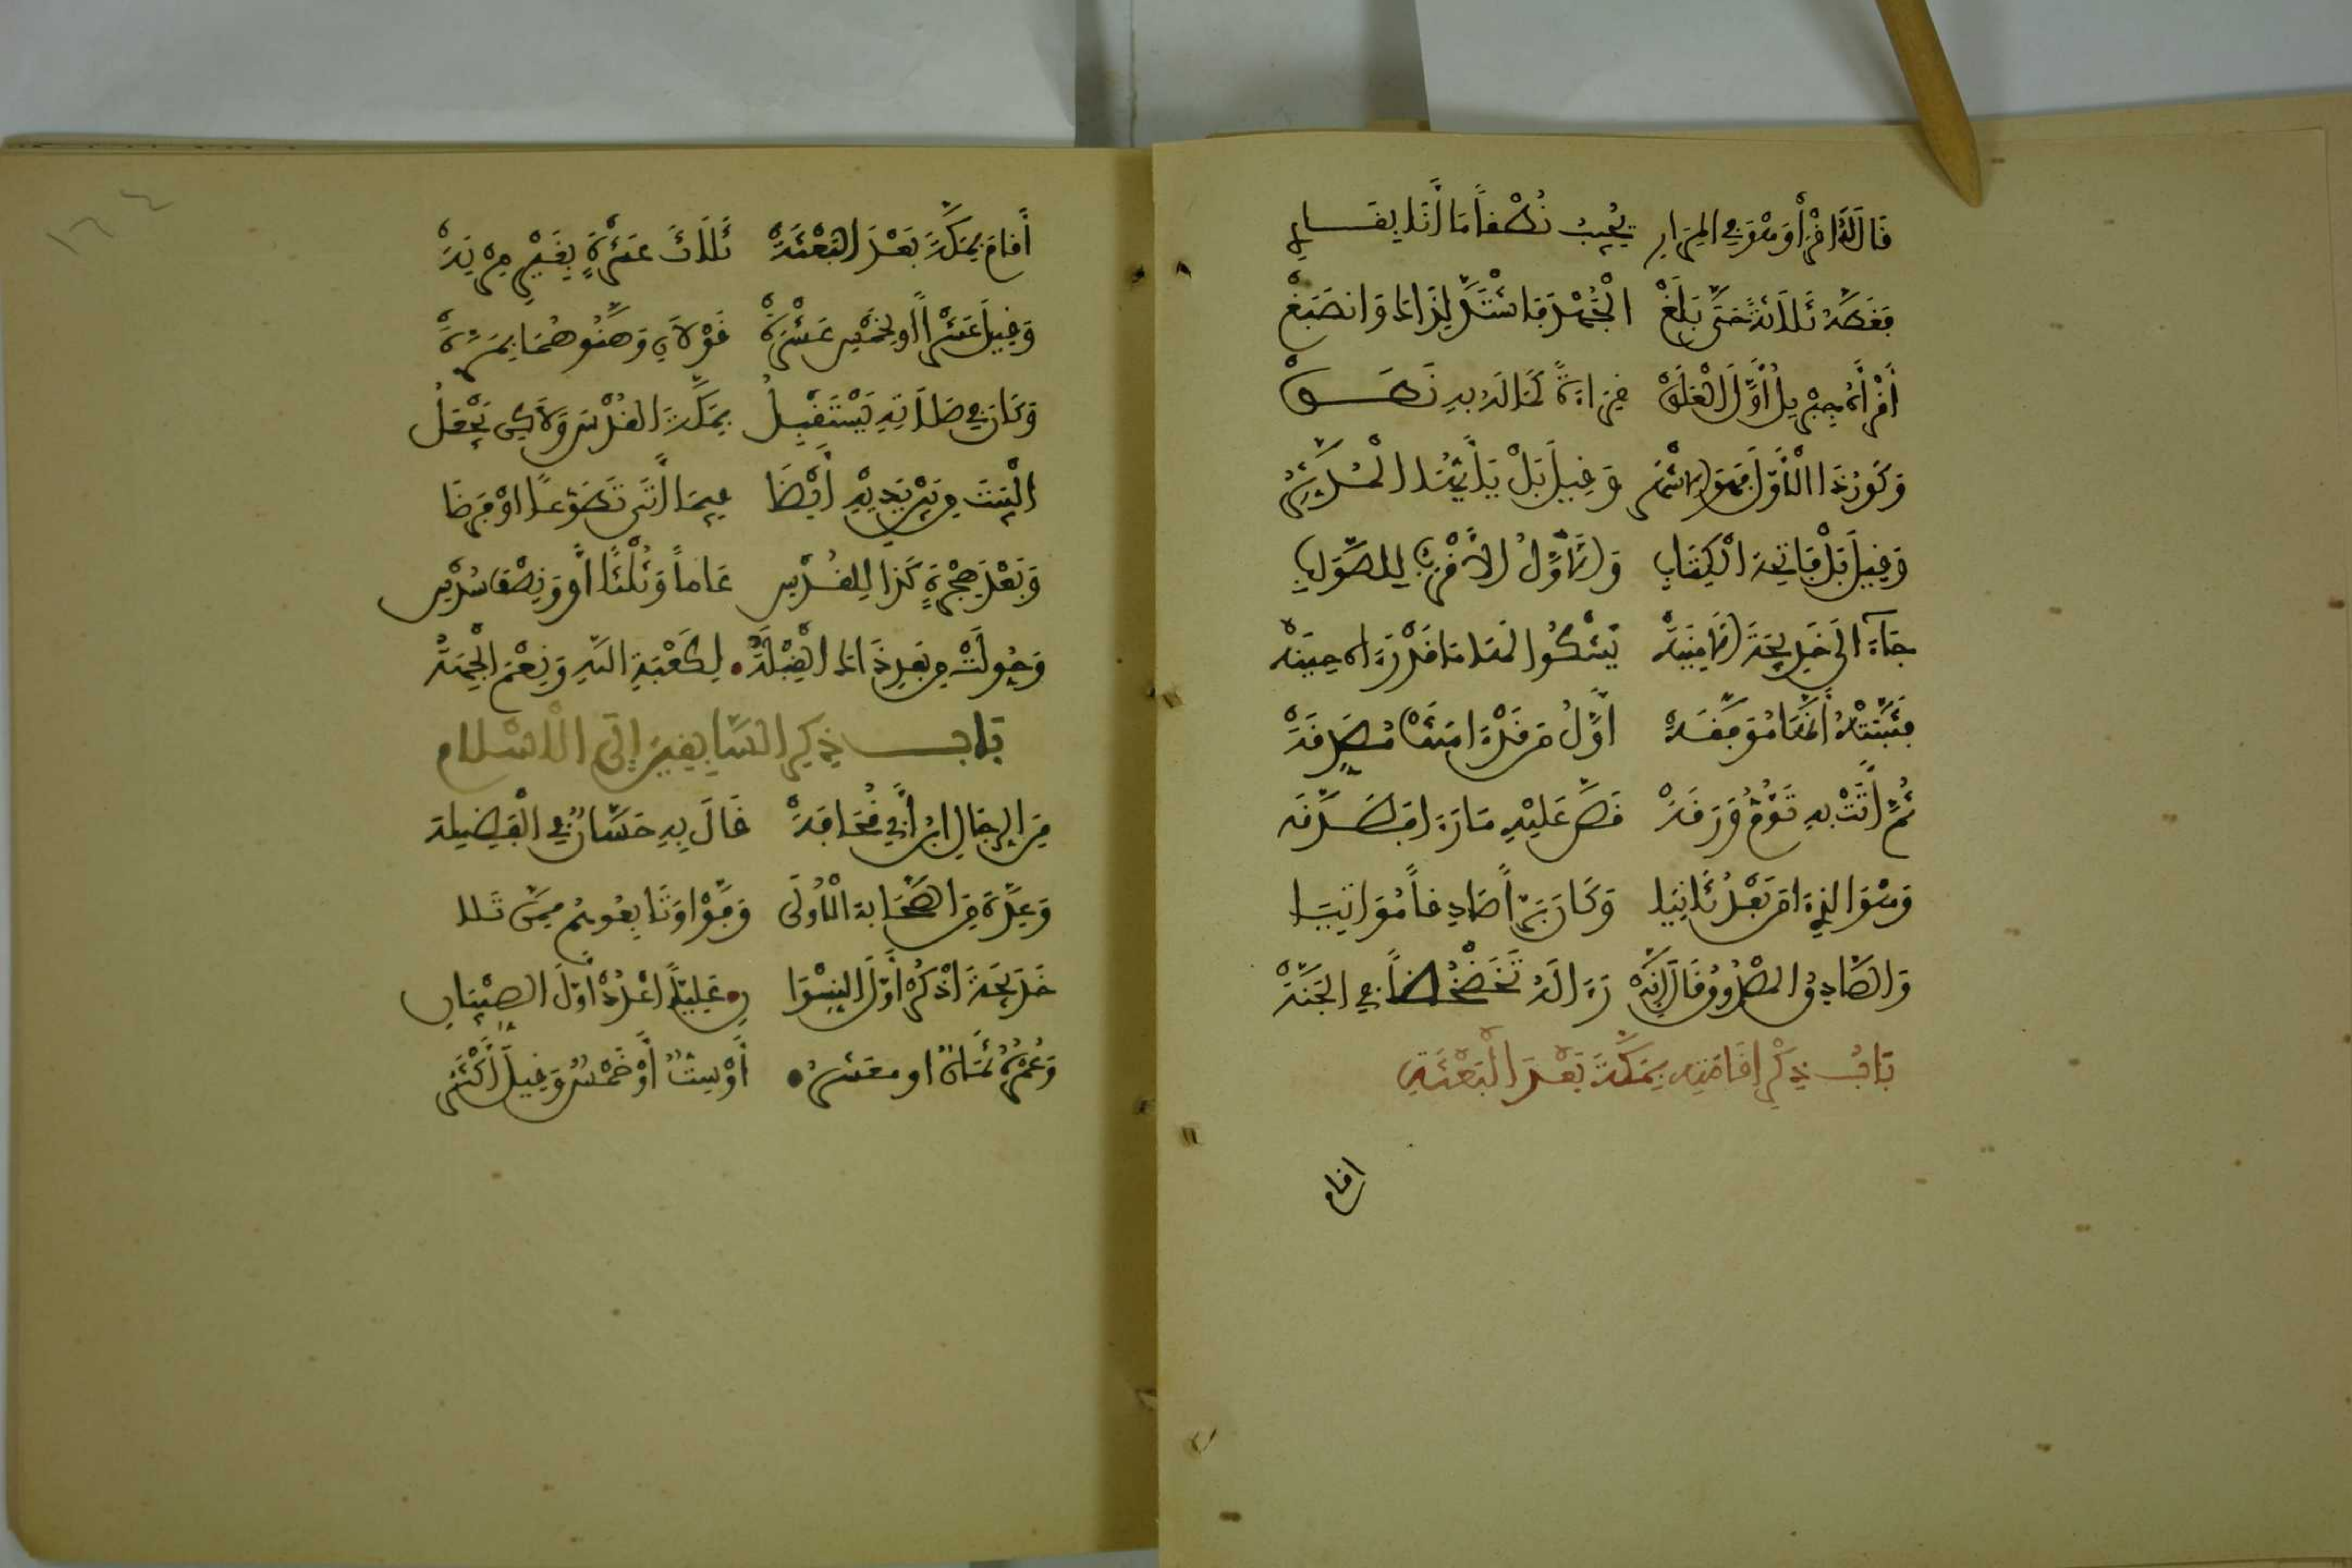 قَالَ لَهُ اقْرَأْ وَهْوَ فِي المِرَارِ يُجِيبُ نُطْقاً مَا أَنَا بِقَارِ
فَغَطَّهُ ثَلَاثَةً حَتَّى بَلَغْ الْجُهْدَ فَاشْتَدَّ لِذَاكَ وَانصَبَغْ
أَقْرَأَهُ جِبْرِيلُ أَوَّلَ الْعَلَقْ قِرَاءَةً كَمَا لَهُ بِهِ نَطَقْ
وَكَوْنُ ذَا الْأَوَّلَ فَهْوَ الأَشْهَرُ وَقِيلَ بَلْ يَا أَيُّهَا الْمُدَّثِّرُ
وَقِيلَ بَلْ فَاتِحَةُ الْكِتَابِ وَالأَوَّلُ الأَقْرَبُ لِلصَّوَابِ
جَاءَ إِلَى خَدِيجَةَ الأَمِينَهْ يَشْكُو لَهَا مَا قَدْ رَءَاهُ حِينَهْ
فَثَبَّتَتْهُ أَنَّهَا مُوَفَّقَهْ أَوَّلُ مَنْ قَدْ ءَامَنَتْ مُصَدِّقَهْ
ثُمَّ أَتَتْ بِهِ تَؤُمُّ وَرَقَهْ قَصَّ عَلَيْهِ مَا رَءَا فَصَدَّقَه
وَهْوَ الذِي ءَامَنَ بَعْدُ ثَانِيَا وَكَانَ بَرّاً صَادِقاً مُوَاتِيَا
وَالصَّادِقُ الْمَصْدُوقُ قَالَ إِنَّهْ رَءَا لَهُ تَخَضْخُضاً فِي الجَنَّهْ
بَابُ ذِكْرِ إِقَامَتِهِ بِمَكَّةَ بَعْدَ الْبَعْثَةِ
اقام
أَقَامَ بِمَكَّةَ بَعْدَ الْبَعْثَهْ ثَلَاثَ عَشْرَةٍ بِغَيْرِ مِرْيَهْ
وَقِيلَ عَشْراً أو لِخَمْسِ عَشْرَةْ قَوْلَانِ وَهَّنُوهُمَا بِمَرَّةْ
وَكَانَ فِي صَلَاتِهِ يَسْتَقْبِلُ بِمَكَّةَ القُدْسَ وَلَاكِن يَجْعَلُ
الْبَيْتَ مِن بَيْنِ يَدَيْهِ أَيْضَا فِيمَا أَتَى تَطَوُّعاً اوْ فَرْضَا
وَبَعْدَ هِجْرَةٍ كَذَا لِلقُدْسِ عَاماً وَثُلْثاً أَوْ وَنِصْفَ سُدْسِ
وَحُوِلَتْ مِن بَعْدِ ذَاكَ الْقِبْلَهْ لِكَعْبَةِ اللهِ وَنِعْمَ الْجِهَهْ
بَاب ذِكْرِ السَّابِقِينَ إِلَى الْاسْلَامِ
مِنَ الرِجَالِ ابْنُ أَبِي قُحَافَهْ قَالَ بِهِ حَسَّانُ فِي الْقَصِيدَة
وَعِدَّةٌ مِنَ الصَّحَابَةِ الْأُولَى وَفَّوْا وَتَابِعُوهُمُ مِمَّن تَلَا
خَدِيجَةَ اذْكُرْ أَوَّلَ النِسْوَانِ عَلِيّاً اعْدُدْ أَوَّلَ الصِبْيَانِ
وَعُمْرُهُ ثَمَانٌ او مَعَشْرُ أَوْ سِتٌّ أَوْ خَمْسٌ وَقِيلَ أَكْثَرُ
١٦٤